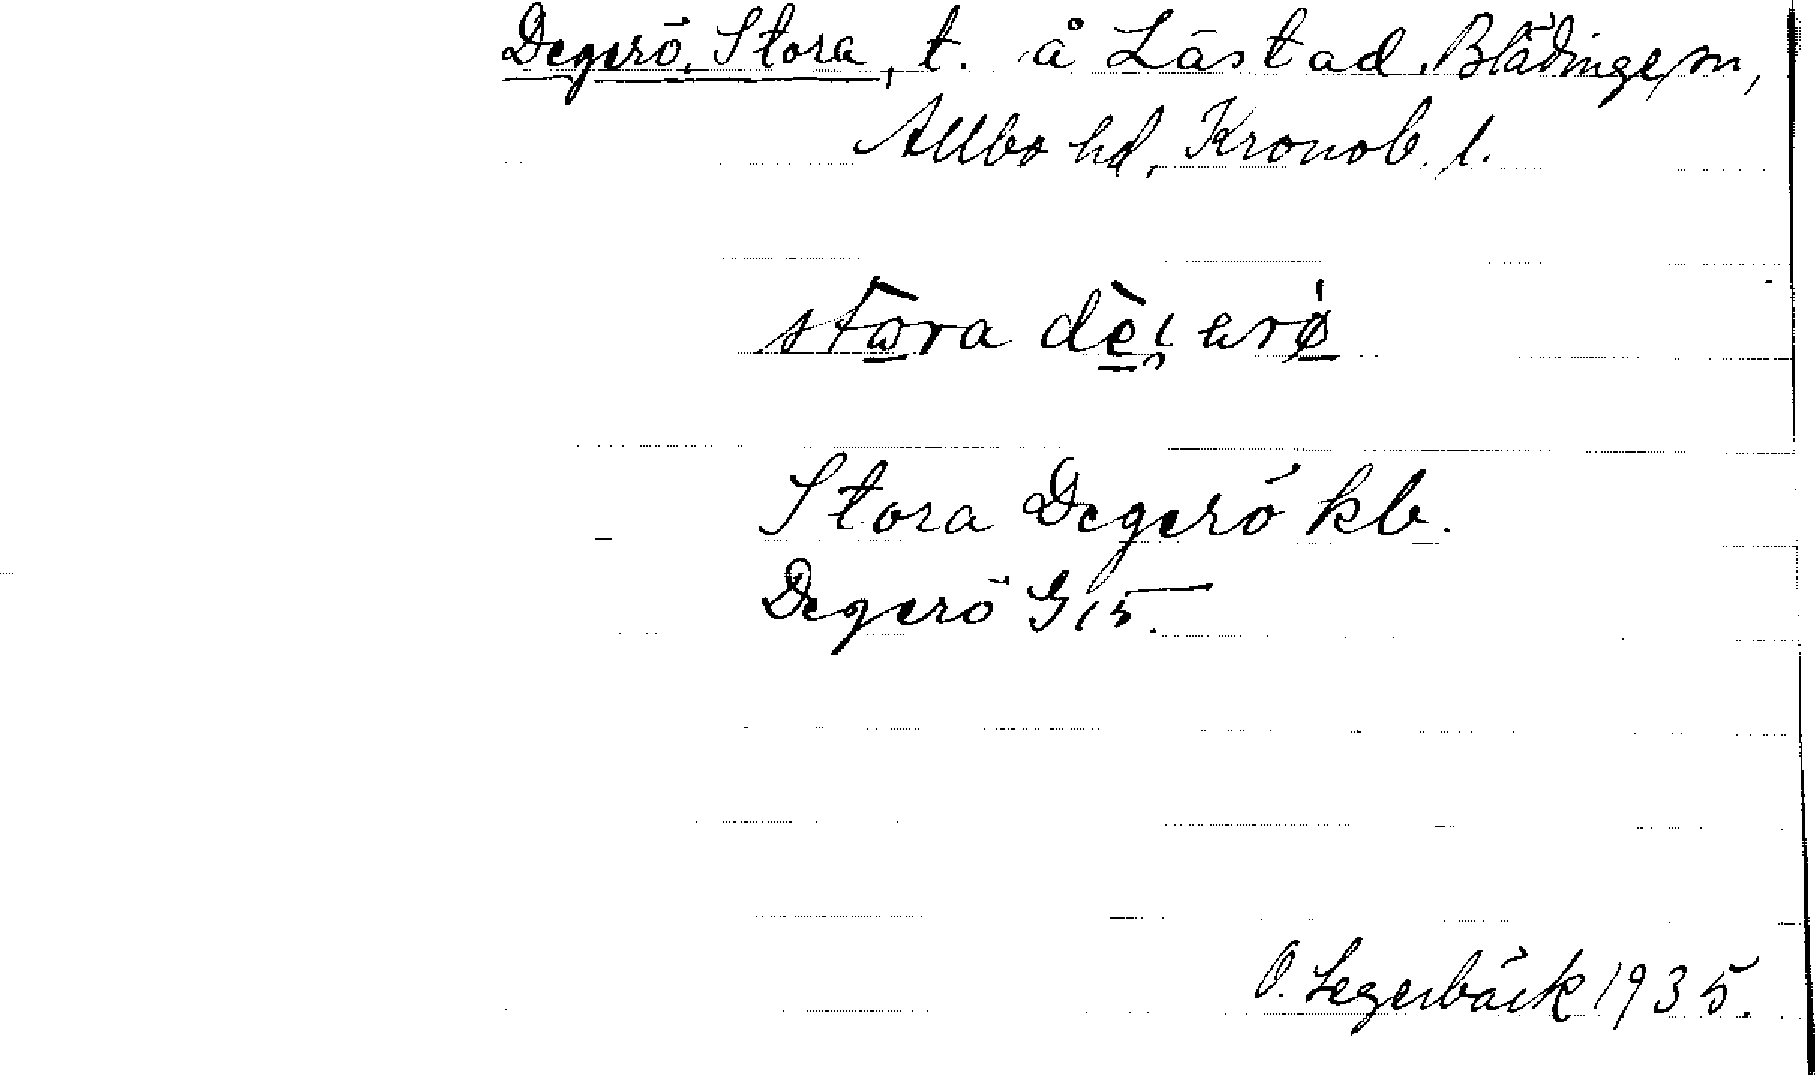 Degerö, Stora, t. å Låstad, Blädinge sn,
Allbo hd, Kronob. l.
stora
Stora Degerö kb.
Degerö G 15.
O. Legerbäck 1935.